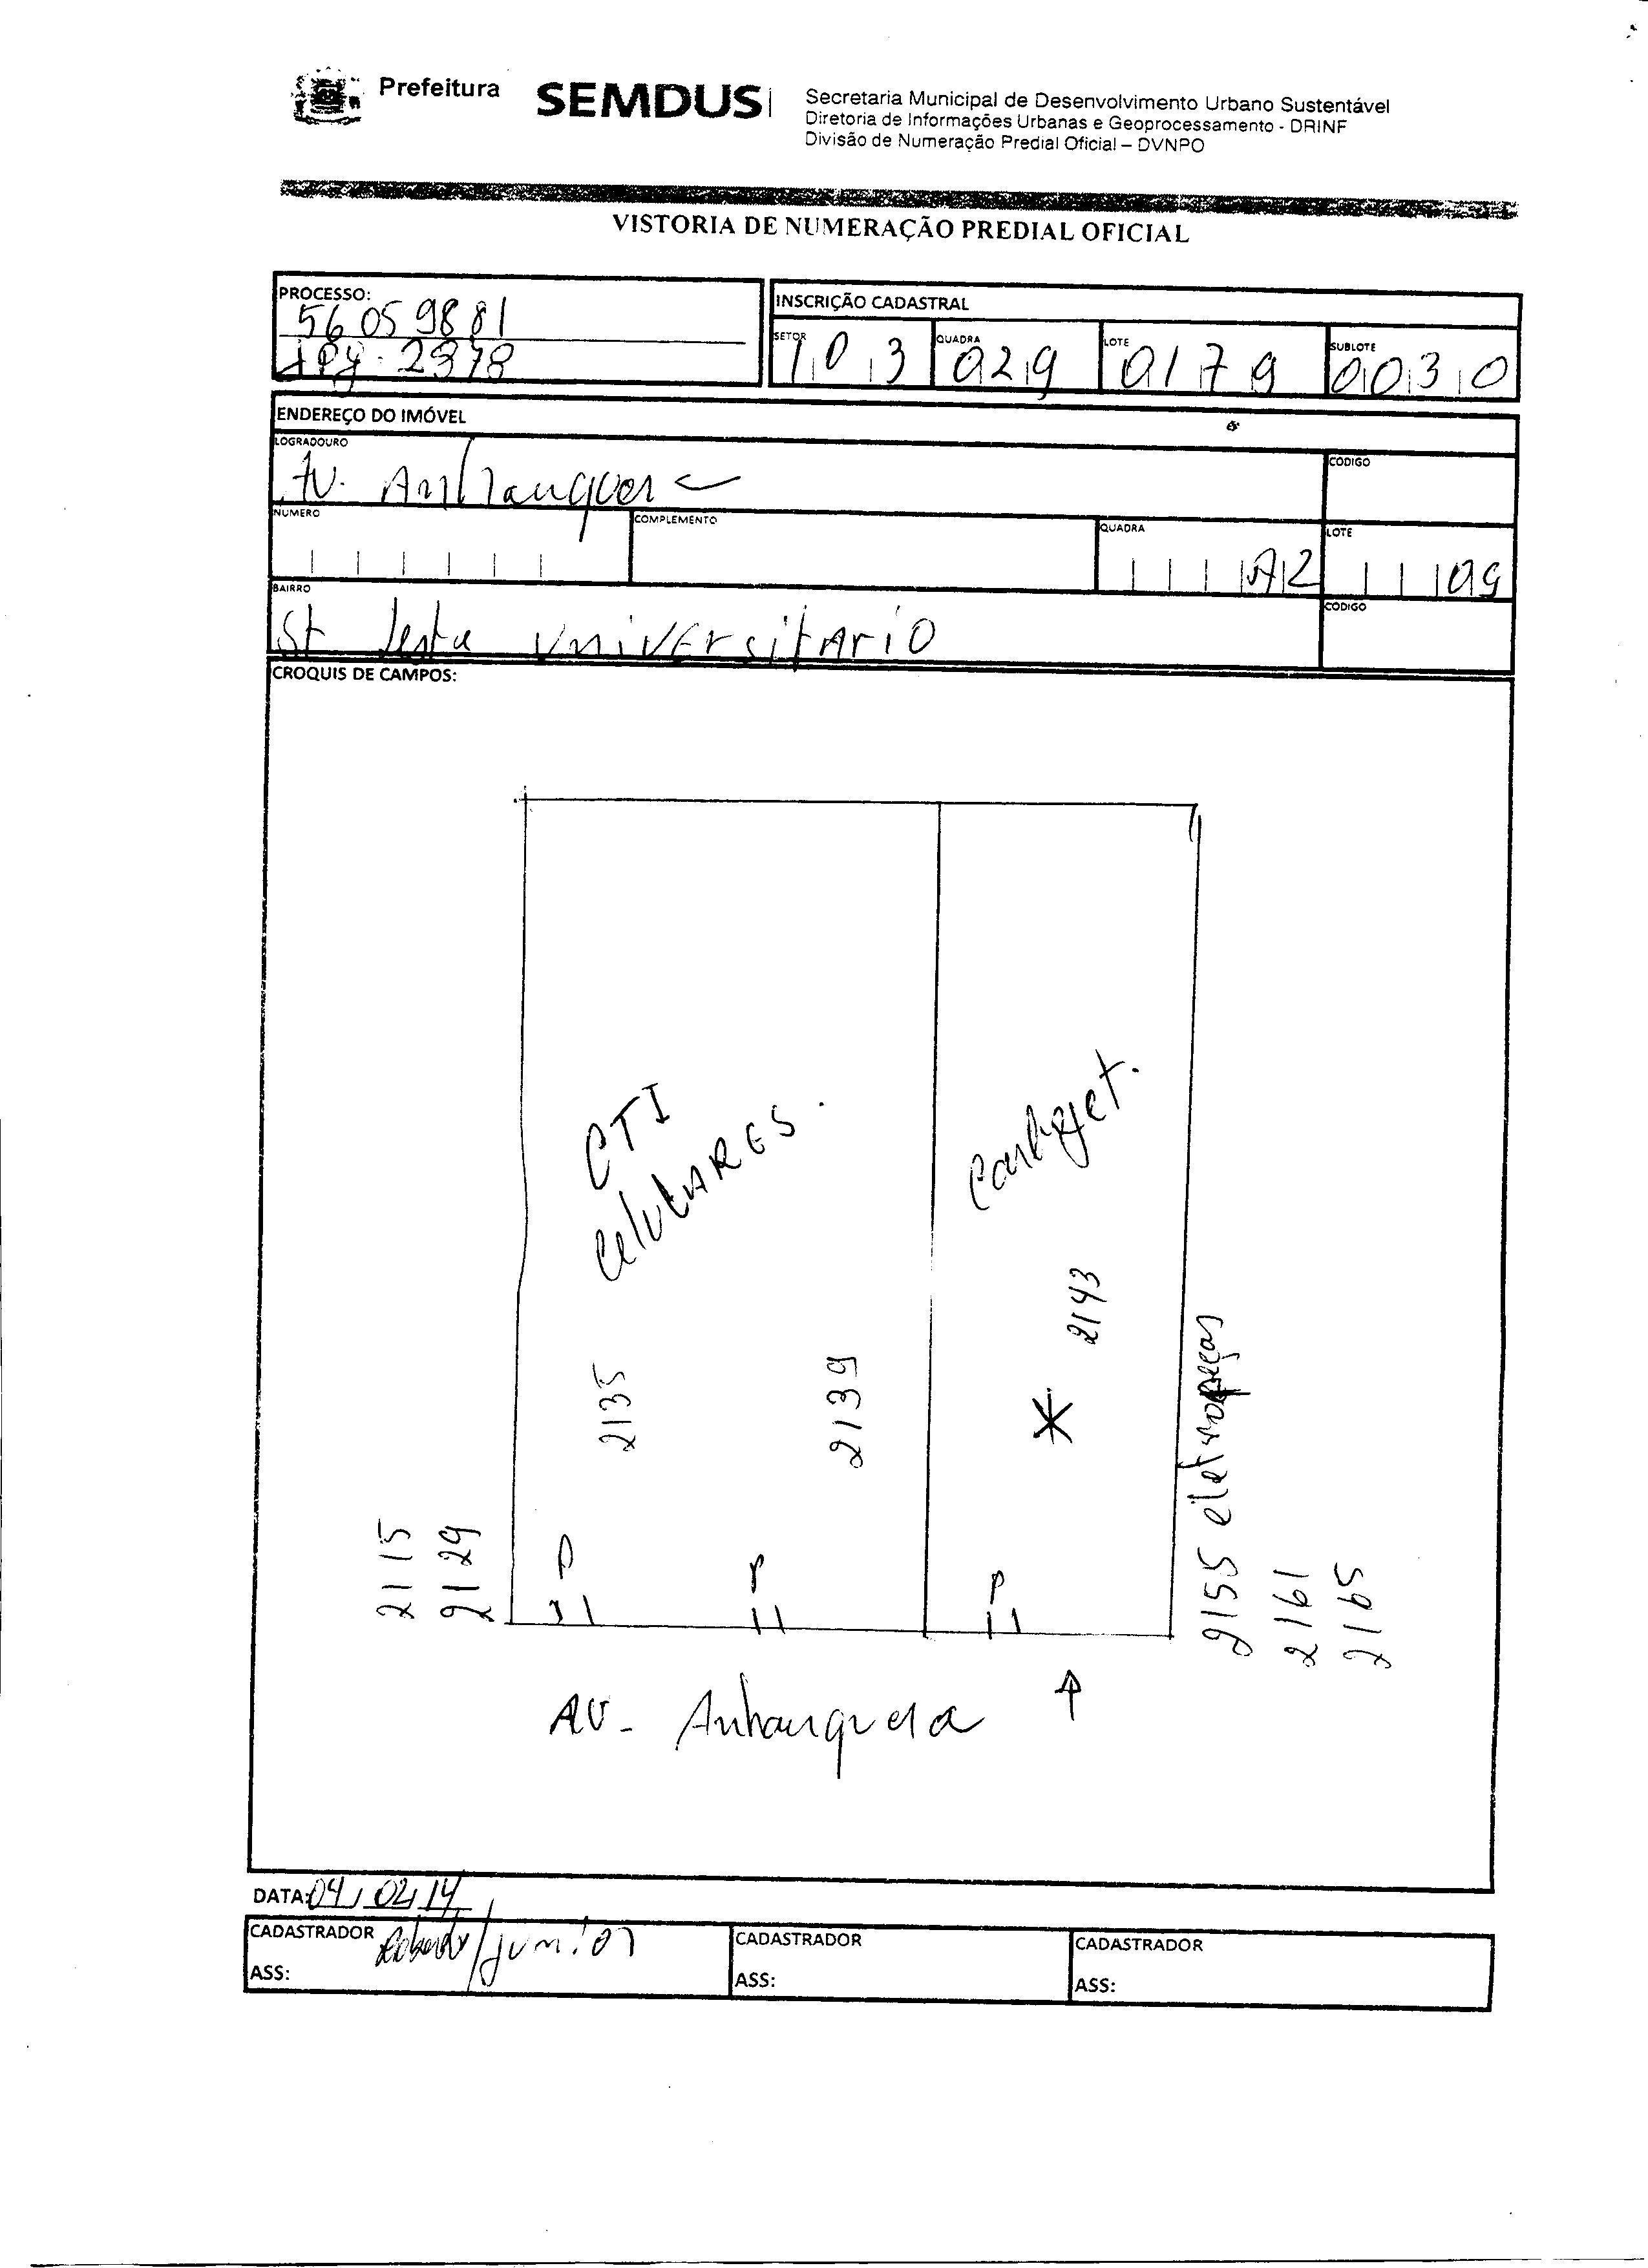 Prefeitura
SEMDUS
Secretaria Municipal de Desenvolvimento Urbano Sustentável
Diretoria de Informações Urbanas e Geoprocessamento - DRINF
Divisão de Numeração Predial Oficial – DVNPO
VISTORIA DE NUMERAÇÃO PREDIAL OFICIAL
PROCESSO:
56059881
2378
INSCRIÇÃO CADASTRAL
SETOR 103 QUADRA 029 LOTE 0179 SUBLOTE 0030
ENDEREÇO DO IMÓVEL
LOGRADOURO
Av. Anhanguera
CÓDIGO
NUMERO
COMPLEMENTO
QUADRA
A2
LOTE
09
BAIRRO
St Leste Universitário
CÓDIGO
CROQUIS DE CAMPOS:
CTI
Celulares.
Carbojet.
2143
2135
2139
2115
2129
P
P
P
2155 eletropeças
2161
2165
AV- Anhanguera
DATA: 04/02/14
CADASTRADOR
Junior
ASS:
CADASTRADOR
ASS:
CADASTRADOR
ASS: